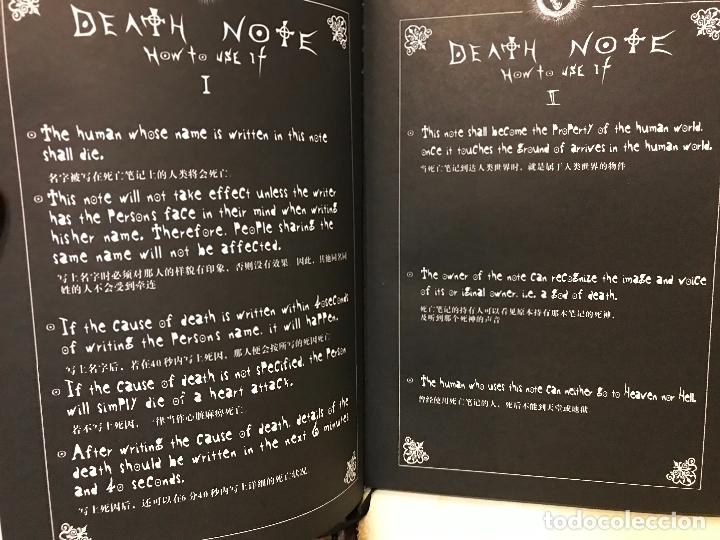 DEATH NOTE
How to use it
I
The human whose name is written in this note
shall die.
名字被写在死亡笔记上的人类将会死亡.
This note will not take effect unless the writer
has the persons face in their mind when writing
hisher name. Therefore, people sharing the
same name will not be affected.
写上名字时必须对那人的样貌有印象, 否则没有效果. 因此, 其他同名同
姓的人不会受到牵连
If the cause of death is written within 40seconds
of writing the persons name, it will happen.
写上名字后, 若在40秒内写上死因, 那人便会按所写的死因死亡
If the cause of death is not specified, the person
will simply die of a heart attack.
若不写上死因, 一律当作心脏麻痹死亡.
After writing the cause of death, details of the
death should be written in the next 6 minutes
and 40 seconds.
写上死因后, 还可以在6分40秒内写上详细的死亡状况.
DEATH NOTE
How to use it
II
This note shall become the property of the human world,
once it touches the ground of arrives in the human world.
当死亡笔记到达人类世界时, 就是属于人类世界的物件
The owner of the note can recognize the image and voice
of its or iginal owner, i.e. a god of death.
死亡笔记的持有人可以看见原本持有那本笔记的死神,
及听到那个死神的声音
The human who uses this note can neither go to Heaven nor Hell.
曾经使用死亡笔记的人, 死后不能到天堂或地狱.
todocoleccion